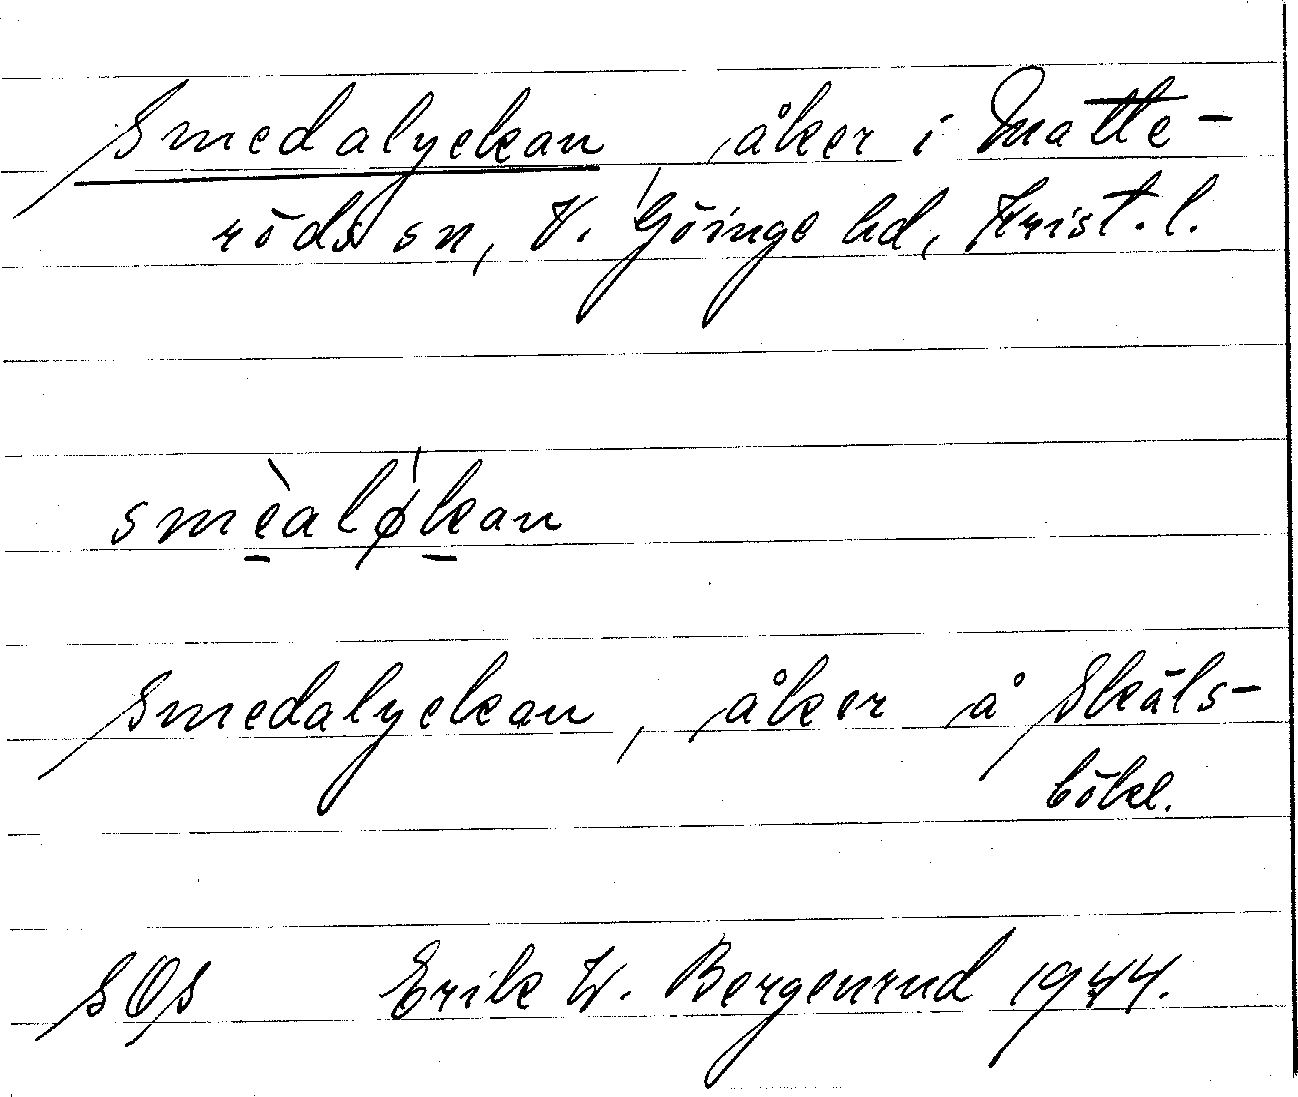 Smedalyckan, åker i Matte-
röds sn, V. Göinge hd, Krist. l.
smèḁlø̍kan
Smedalyckan, åker å Skäls-
böke.
SOS Erik W. Bergenrud 1944.